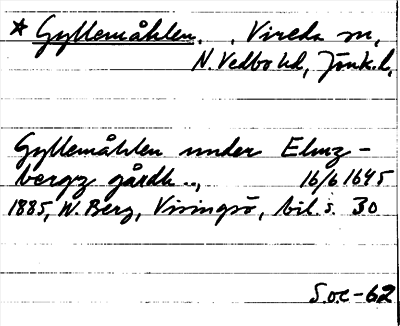 * Gyllemåhlen. . Vireda sn,
N. Vedbo hd, Jönk. l,
Gyllemåhlen under Elmz-
bergz gårdh .., 16/6 1645
1885, W. Berg, Visingsö, bil. s. 30
S.o.c -62